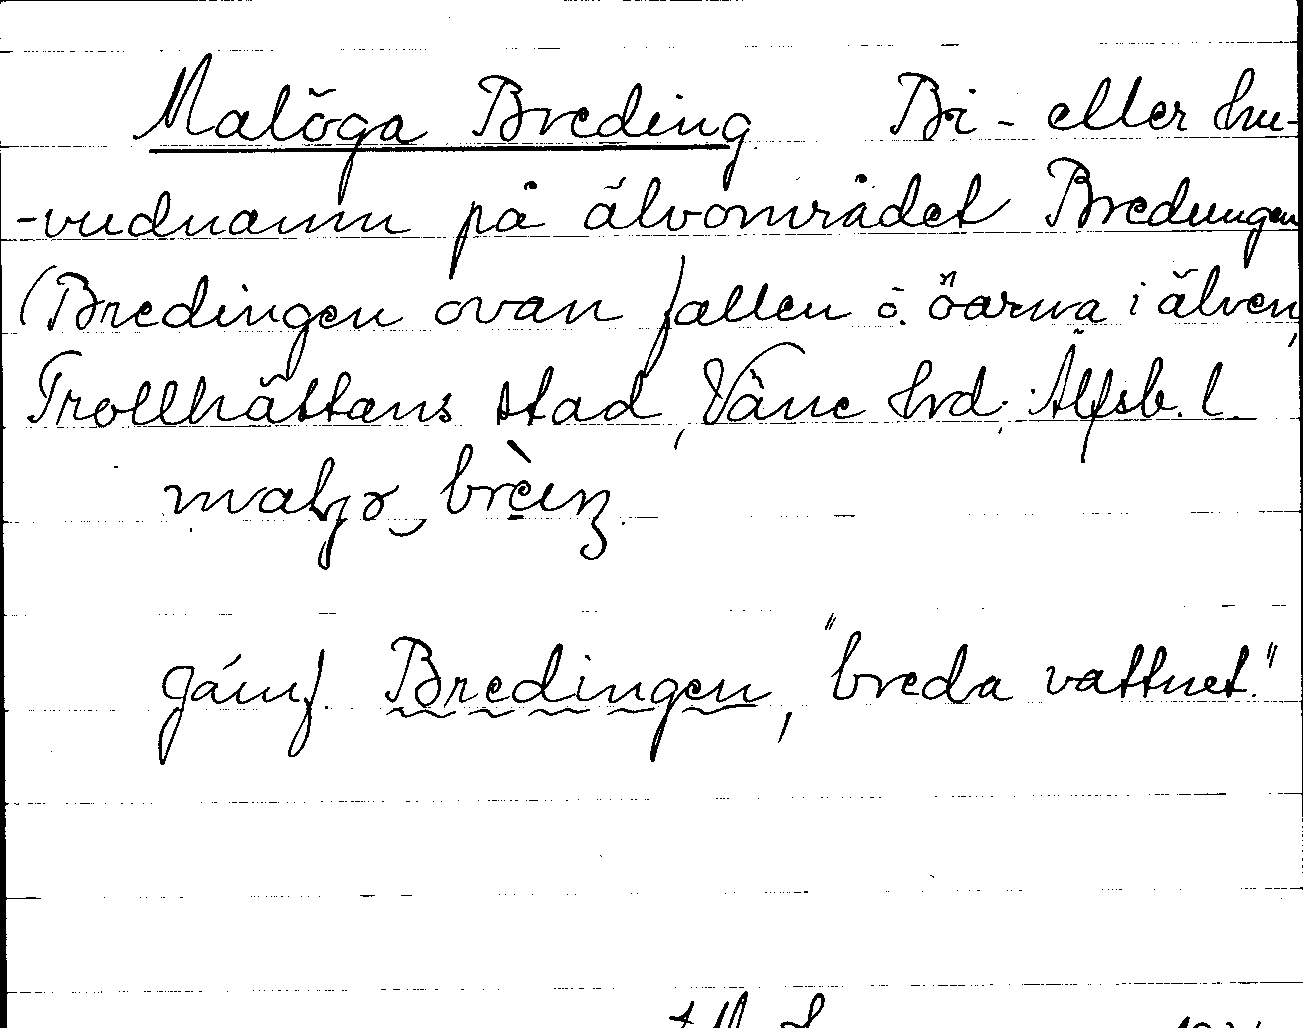 Malöga Breding Bi- eller hu-
-vudnamn på älvområdet Bredungen
(Bredingen ovan fallen ö. öarna i älven,
Trollhättans stad, Väne hrd. Älfsb. l.
jämf. Bredingen, "breda vattnet."